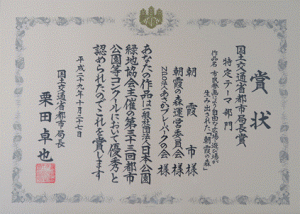 賞状
国土交通省都市局長賞
特定テーマ部門
作品名 市民参加により自由な広場・遊び場が
生み出された「朝霞の森」
朝霞市様
朝霞の森運営委員会様
NPO法人あさかプレーパークの会様
あなたの作品は一般社団法人日本公園
緑地協会主催の第三十三回都市
公園等コンクールにおいて優秀と
認められたのでこれを賞します
平成二十九年十月二十七日
国土交通省都市局長
栗田卓也